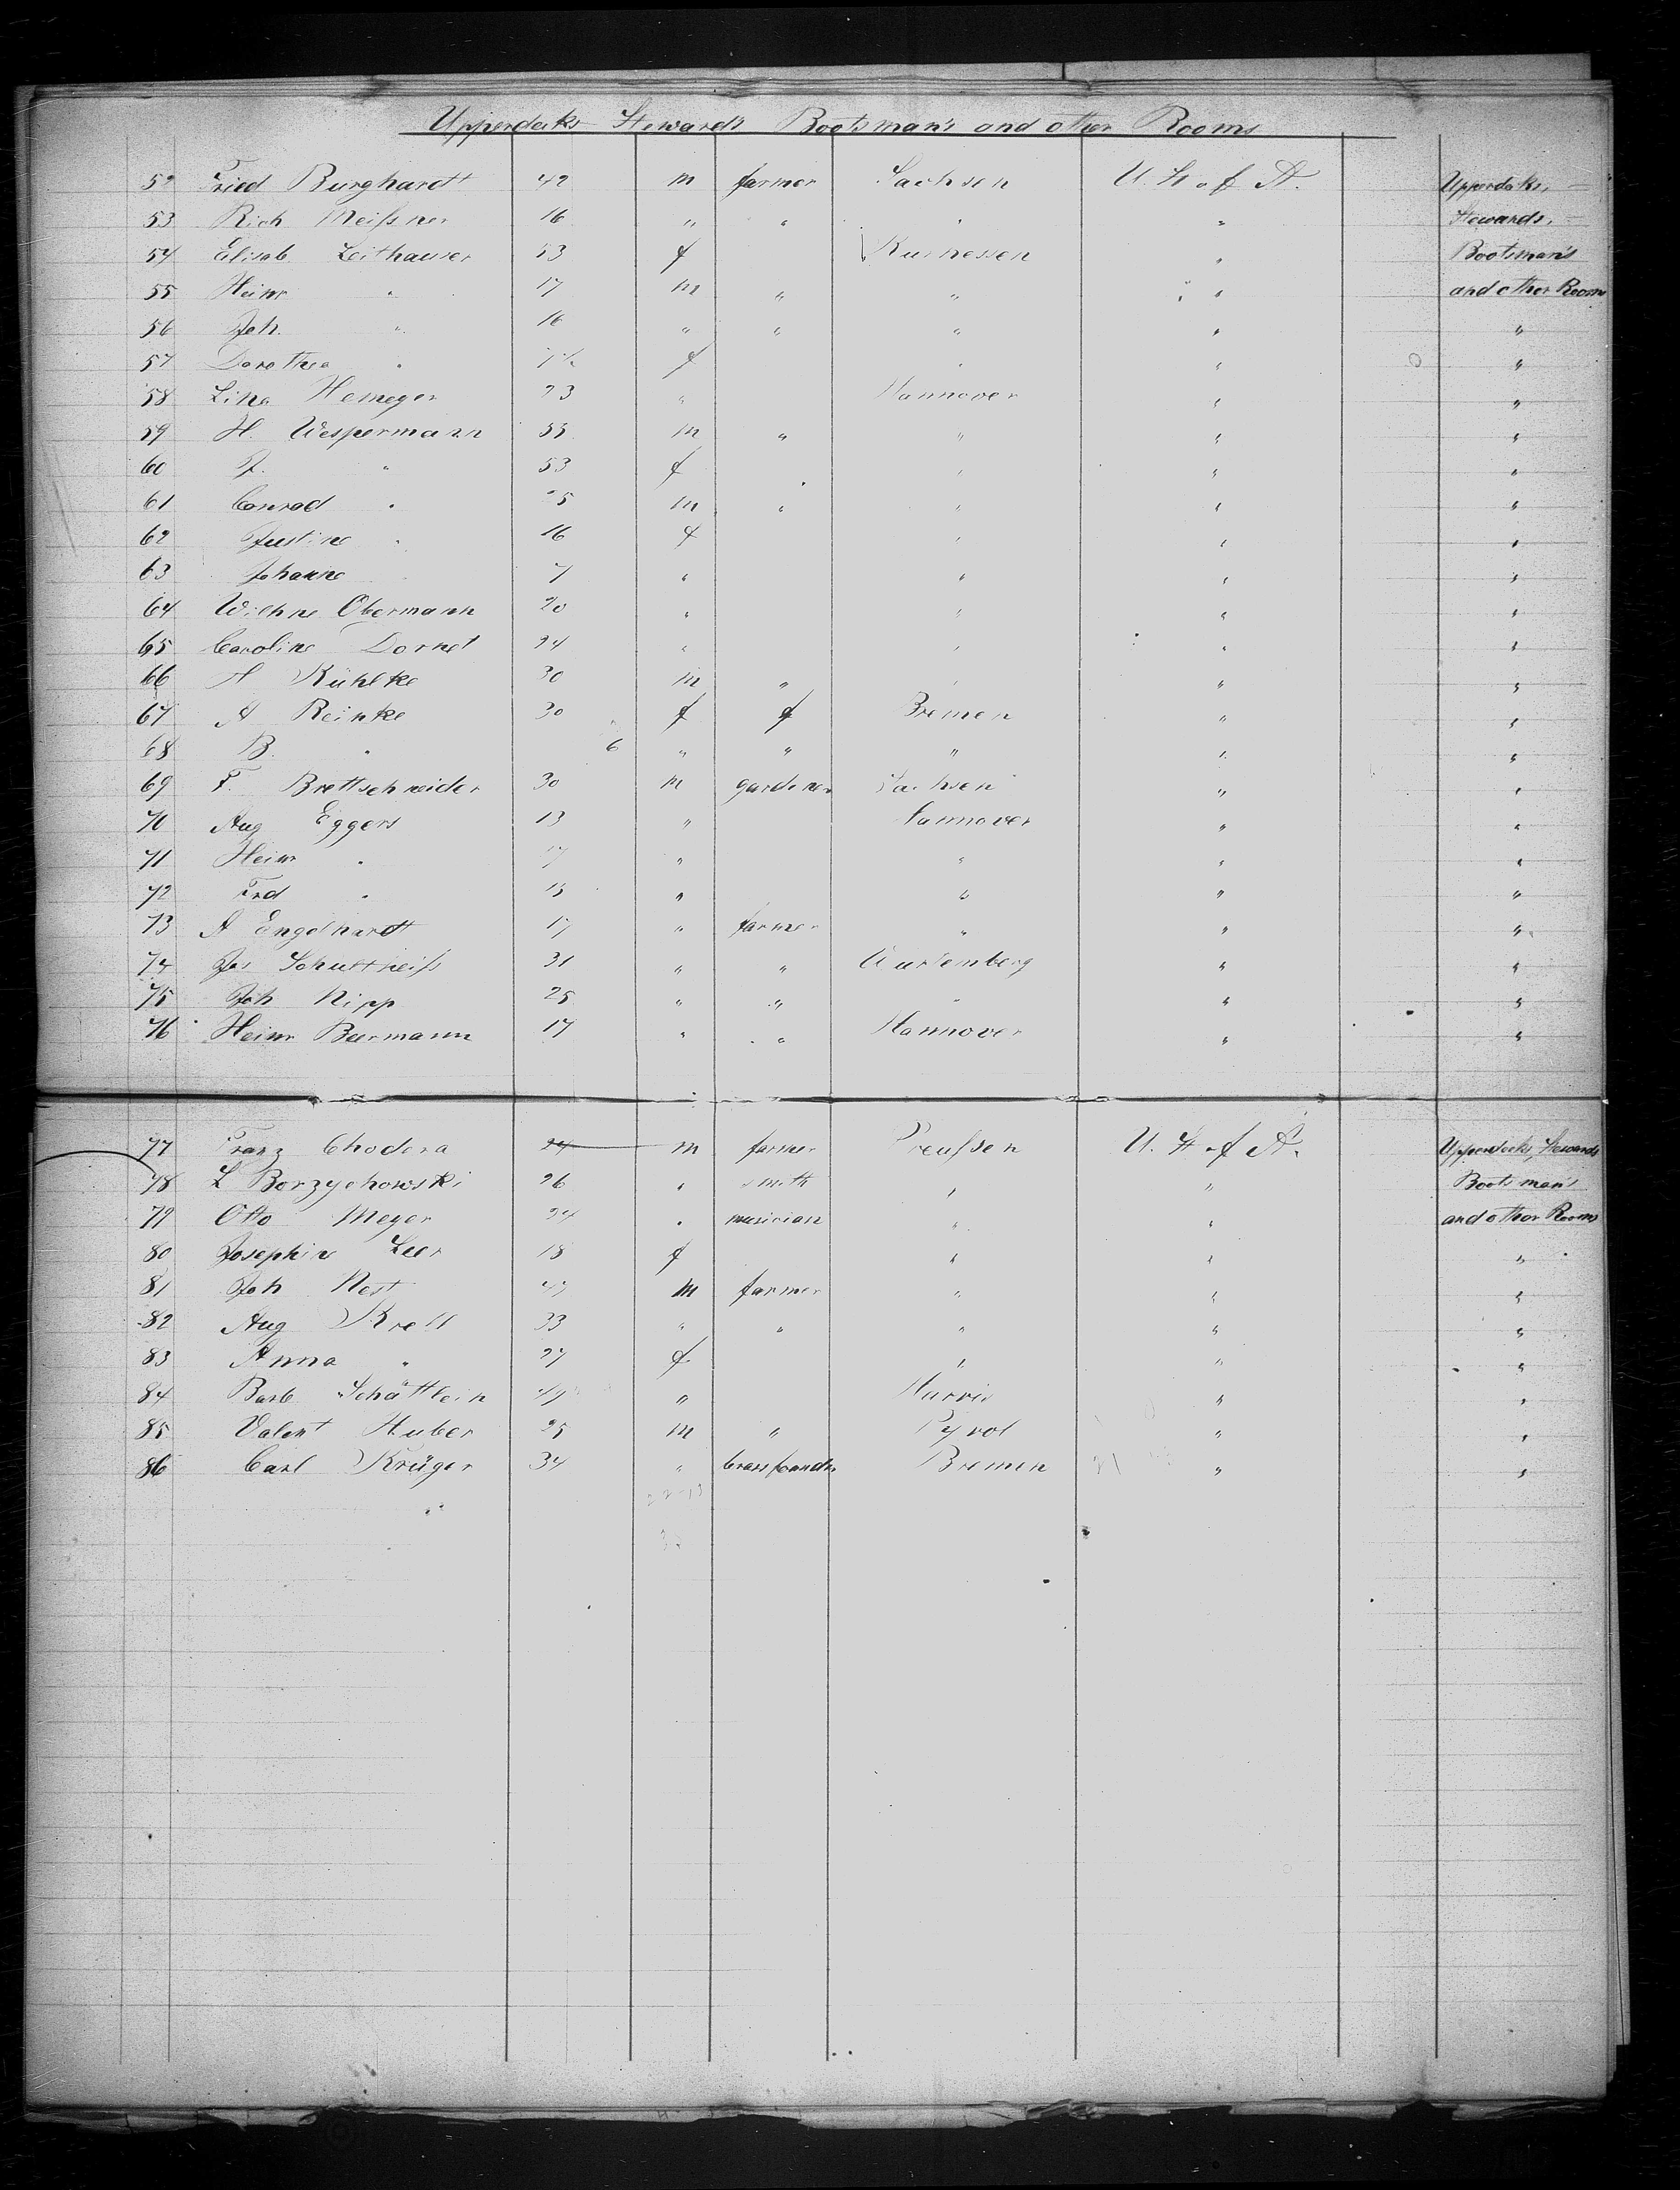 Upperdeks Stewards Bootsman's and other Rooms
52 Fried Burghardt 42 m farmer Sachsen U. St. of A. Upperdeks,
53 Rich Meißner 16 " " " " Stewards,
54 Elisab. Leithauser 53 f Kurhessen " Bootsman's
55 Heinr " 17 m " " " and other Rooms
56 Joh. " 16 " " " " "
57 Dorothea " f " " "
58 Lina Hemeyer 23 " Hannover " "
59 H. Wespermann 55 m " " " "
60 J. " 53 f " " "
61 Conrad " 25 m " " " "
62 Justine " 16 f " " "
63 Johanne 7 " " " "
64 Wilhne Obermann 20 " " " "
65 Caroline Dornet 24 " " " "
66 A Kühlke 30 m " " " "
67 A Reinke 30 f f Bremen " "
68 B. " 6 " " " " "
69 F. Brettschneider 30 m gardener Sachsen " "
70 Aug Eggers 13 " Hannover " "
71 Heinr " 17 " " " "
72 Frd " 15 " " " "
73 A Engelhardt 17 " farmer " " "
74 Jos Schultheiß 31 " " Wurtemberg " "
75 Joh Nipp 25 " " " " "
76 Heinr Beermann 17 " " Hannover " "
77 Franz Chodora 24 m farmer Preußen U. St. of A. Upperdecks, Stewards
78 L Borzychowski 26 " smith " " Bootsman's
79 Otto Meyer 24 " musician " " and other Rooms
80 Josephin Leer 18 f " " "
81 Joh Nest 47 m farmer " " "
82 Aug Krell 33 " " " " "
83 Anna " 27 f " " "
84 Barb Schättlein 49 " " "
85 Valent Huber 25 m " Tyrol " "
86 Carl Krüger 34 " brassfounder Bremen " "